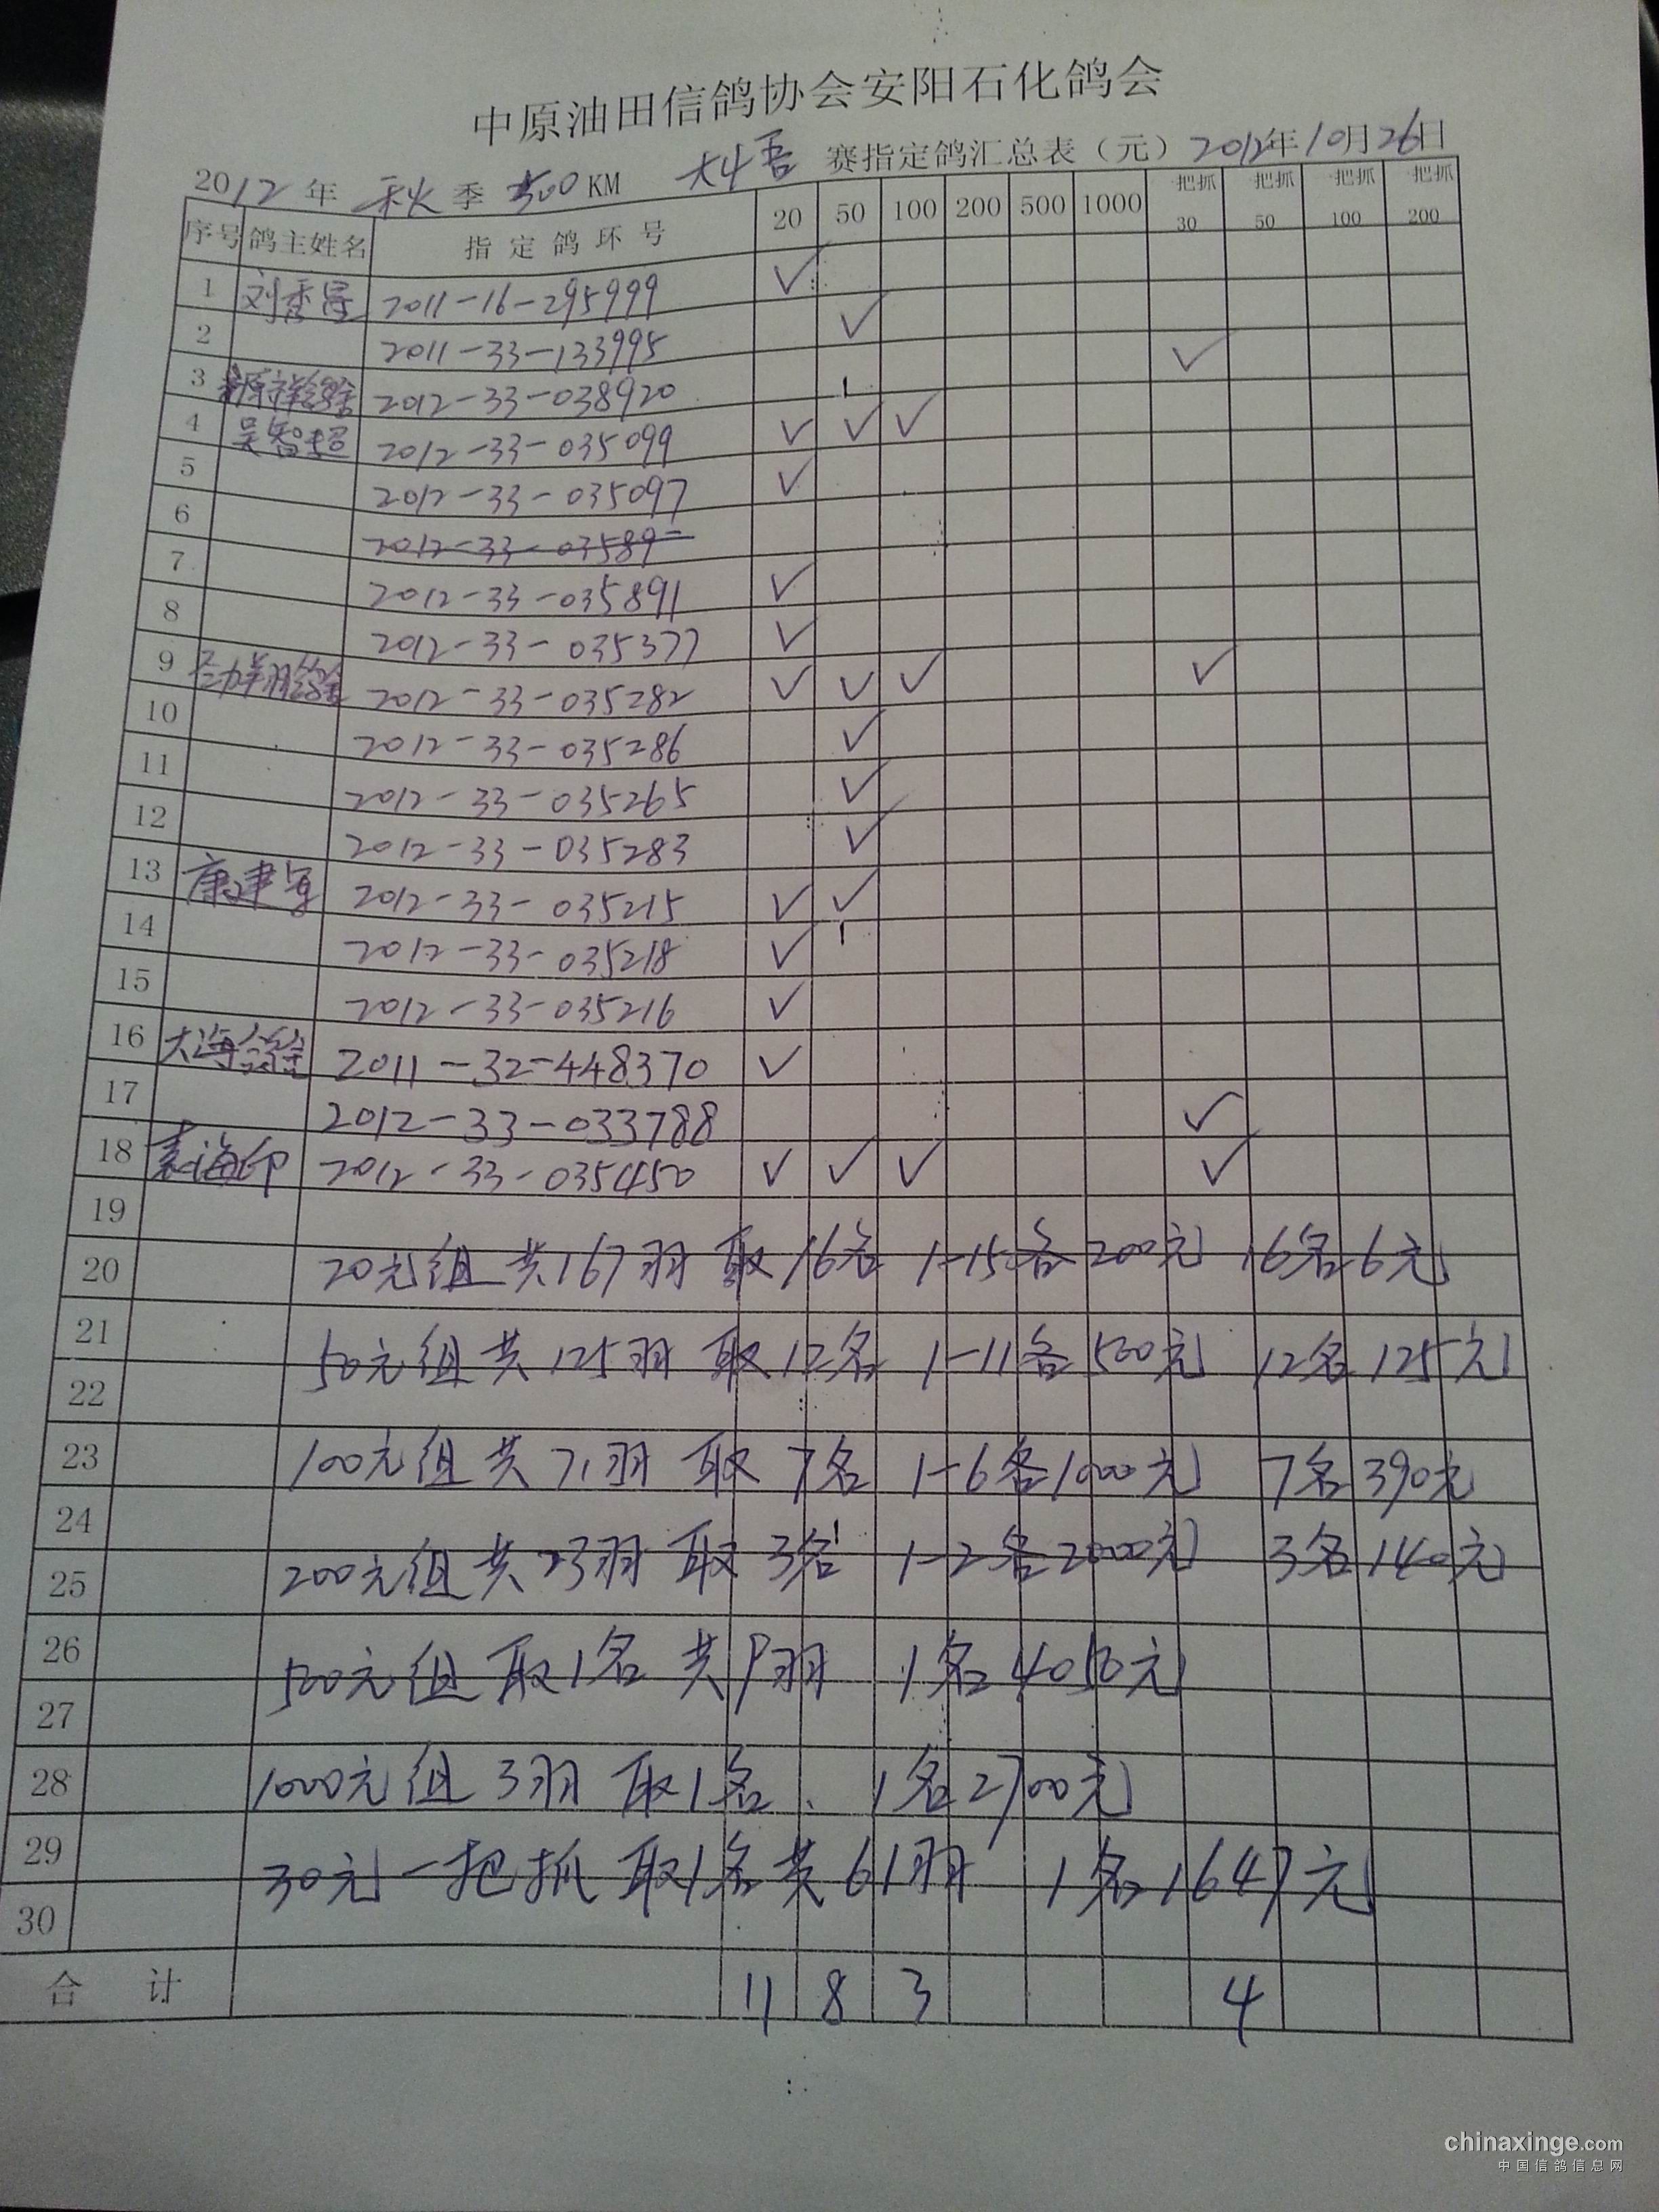 中原油田信鸽协会安阳石化鸽会
2012年 秋季 500KM 大悟 赛指定鸽汇总表（元）2012年10月26日
序号 鸽主姓名 指定鸽环号 20 50 100 200 500 1000 一把抓30 一把抓50 一把抓100 一把抓200
1 刘秀 2011-16-295999 ✓
2 2011-33-133995 ✓
3 2012-33-038920 ✓
4 吴智超 2012-33-035099 ✓ ✓ ✓
5 2012-33-035097 ✓
6 2012-33-03589
7 2012-33-035891 ✓
8 2012-33-035377 ✓
9 翔鸽舍 2012-33-035282 ✓ ✓ ✓ ✓
10 2012-33-035286 ✓
11 2012-33-035265 ✓
12 2012-33-035283 ✓
13 康建 2012-33-035215 ✓ ✓
14 2012-33-035218 ✓
15 2012-33-035216 ✓
16 大海鸽舍 2011-32-448370 ✓
17 2012-33-033788 ✓
18 袁海印 2012-33-035450 ✓ ✓ ✓ ✓
19
20 20元组共167羽 取16名 1-15各200元 16名6元
21 50元组共125羽 取12名 1-11各500元 12名125元
22
23 100元组共71羽 取7名 1-6各1000元 7名390元
24
25 200元组共23羽 取3名 1-2各2000元 3名140元
26 500元组 取1名 共9羽 1名4050元
27
28 1000元组 3羽 取1名、 1名2700元
29 30元一把抓 取1名共61羽 1名1647元
30
合计 11 8 3 4
chinaxinge.com
中国信鸽信息网